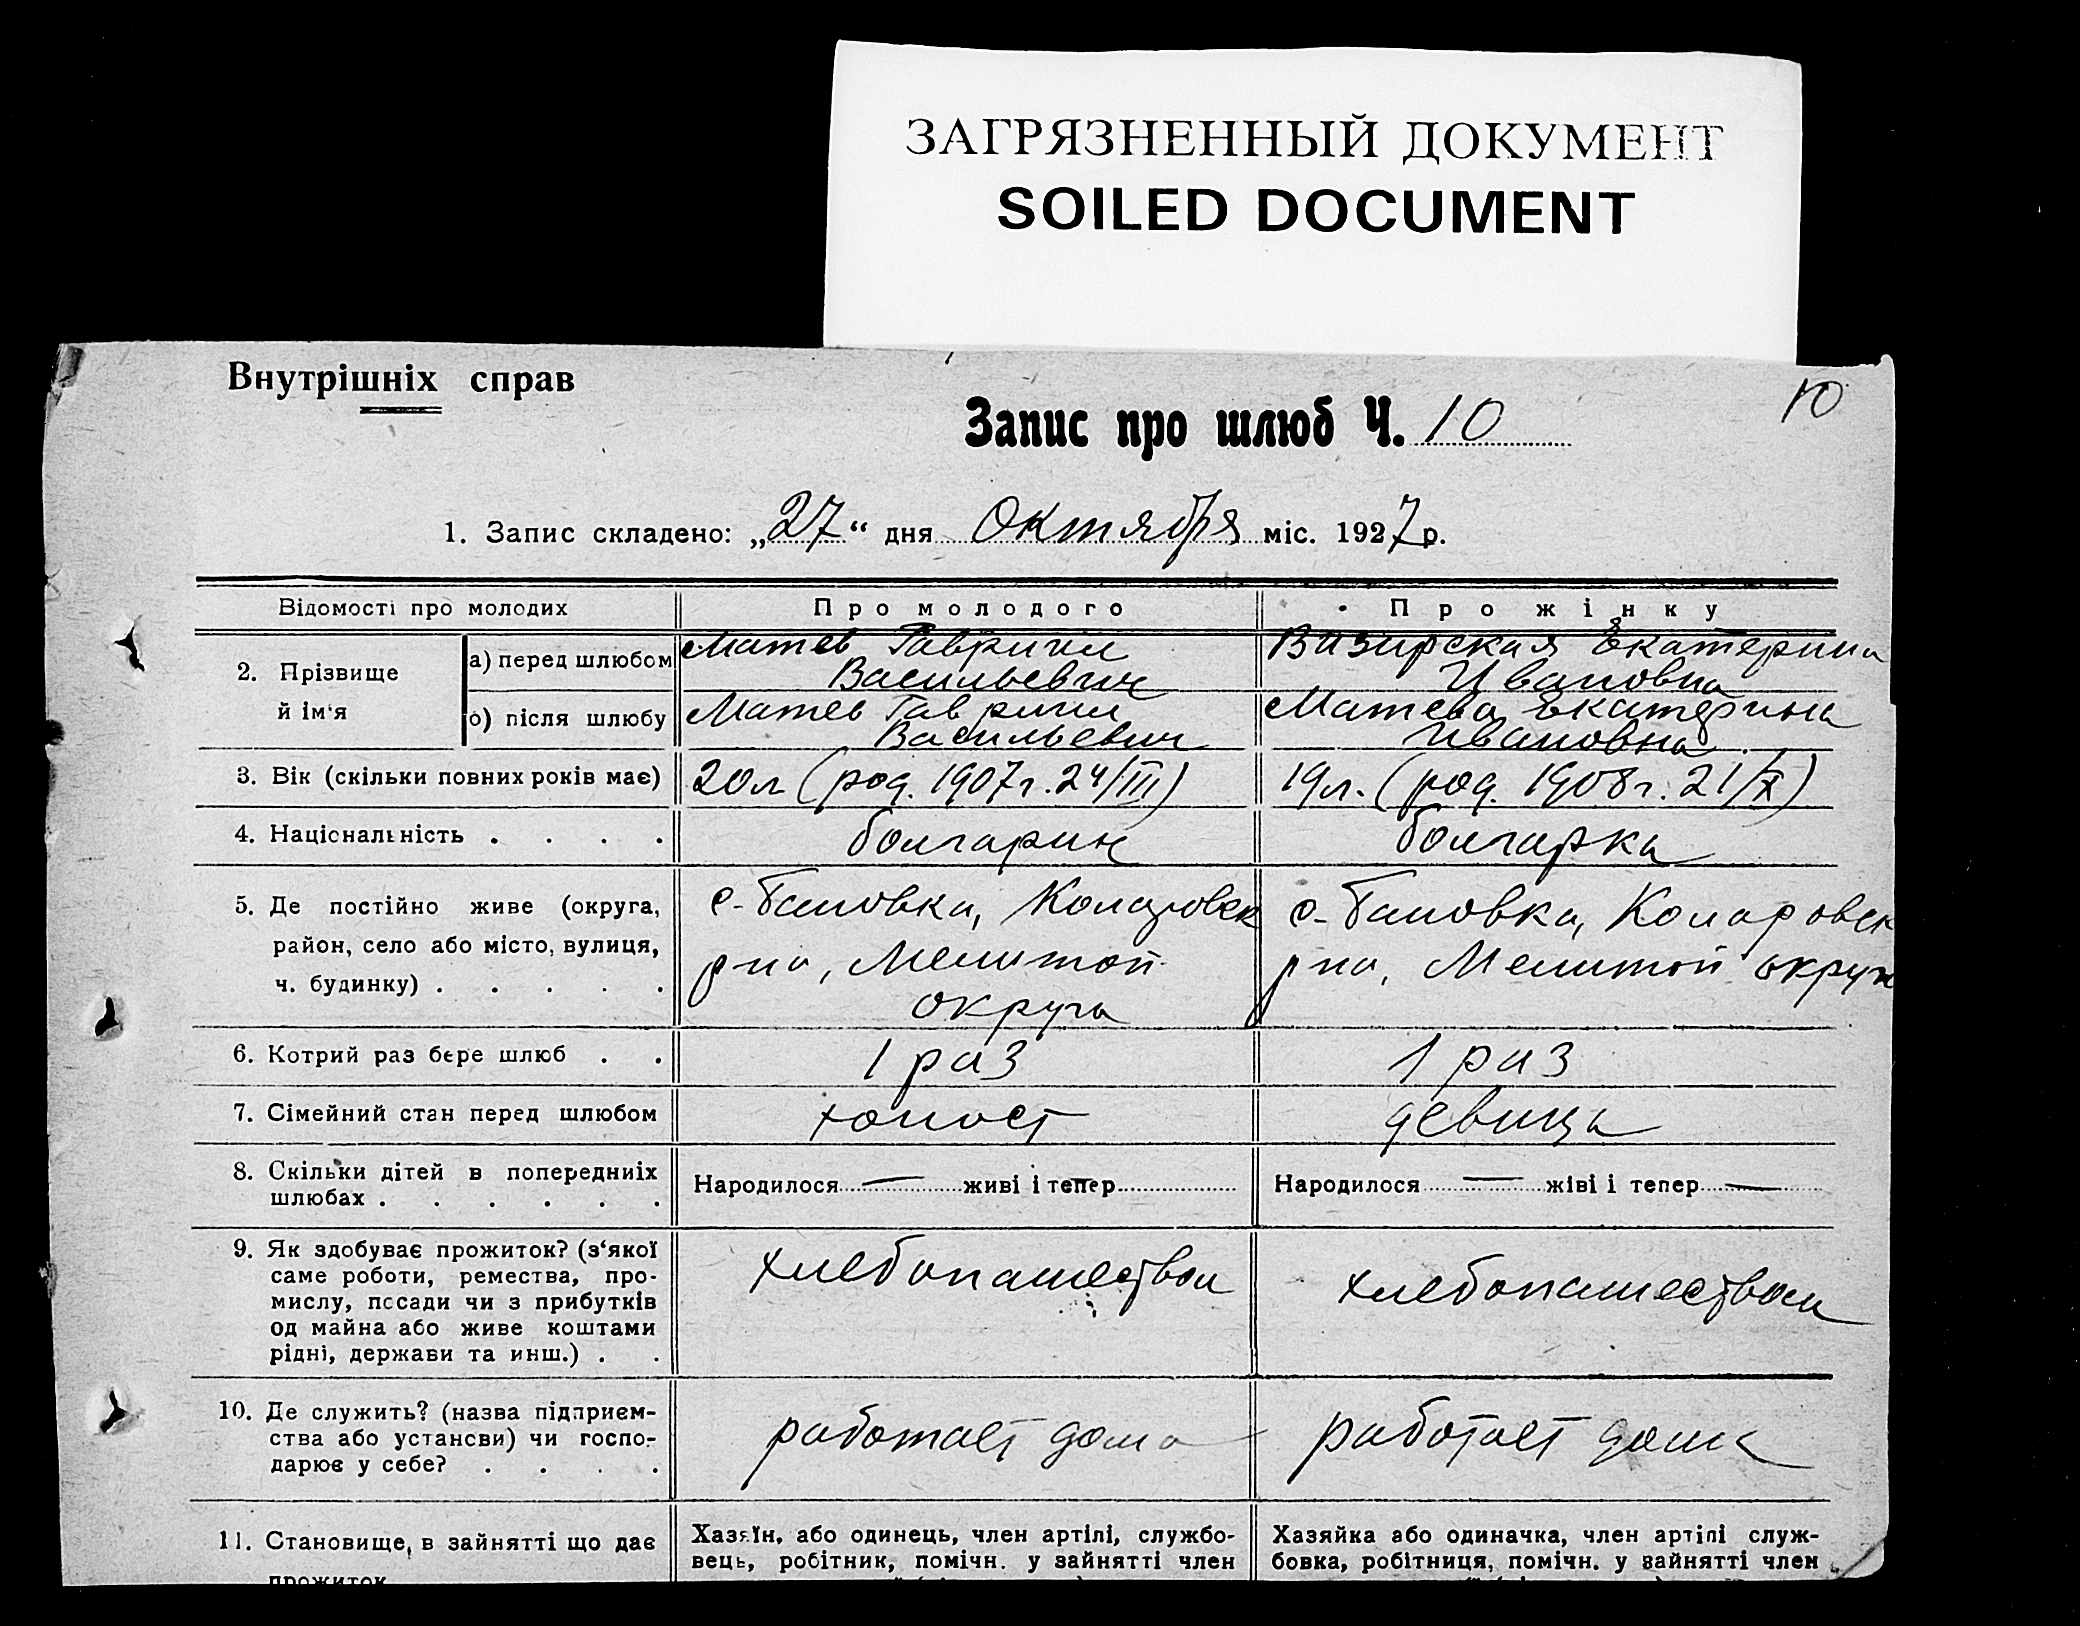 ЗАГРЯЗНЕННЫЙ ДОКУМЕНТ
SOILED DOCUMENT
Внутрішніх справ
10
Запис про шлюб Ч. 10
1. Запис складено: „27“ дня Октября міс. 1927 р.
Відомості про молодих
Про молодого
Про жінку
2. Прізвище й ім‘я
а) перед шлюбом
Матев Гавриил
Васильевич
Визирская Екатерина
Ивановна
б) після шлюбу
Матев Гавриил
Васильевич
Матева Екатерина
Ивановна
3. Вік (скільки повних років має)
20 л (род. 1907 г. 24/III)
19 л. (род. 1908 г. 21/X)
4. Національність . . . .
болгарин
болгарка
5. Де постійно живе (округа,
район, село або місто, вулиця,
ч. будинку) . . . . .
с. Бановка, Коларовск
рна, Мелитоп.
округа
с. Бановка, Коларовск
рна, Мелитоп округи
6. Котрий раз бере шлюб . .
1 раз
1 раз
7. Сімейний стан перед шлюбом
холост
девица
8. Скільки дітей в попередниіх
шлюбах . . . . . .
Народилося — живі і тепер —
Народилося — жіві і тепер —
9. Як здобуває прожиток? (з‘якої
саме роботи, ремества, про-
мислу, посади чи з прибутків
од майна або живе коштами
рідні, держави та инш.) . .
хлебопашеством
хлебопашеством
10. Де служить? (назва підприєм-
ства або устансви) чи госпо-
дарює у себе? . . . .
работает дома
работает дома
11. Становище, в зайнятті що дає
прожиток
Хазяїн, або одинець, член артілі, службо-
вець, робітник, помічн. у зайнятті член
Хазяйка або одиначка, член артілі служ-
бовка, робітниця, помічн. у зайнятті член